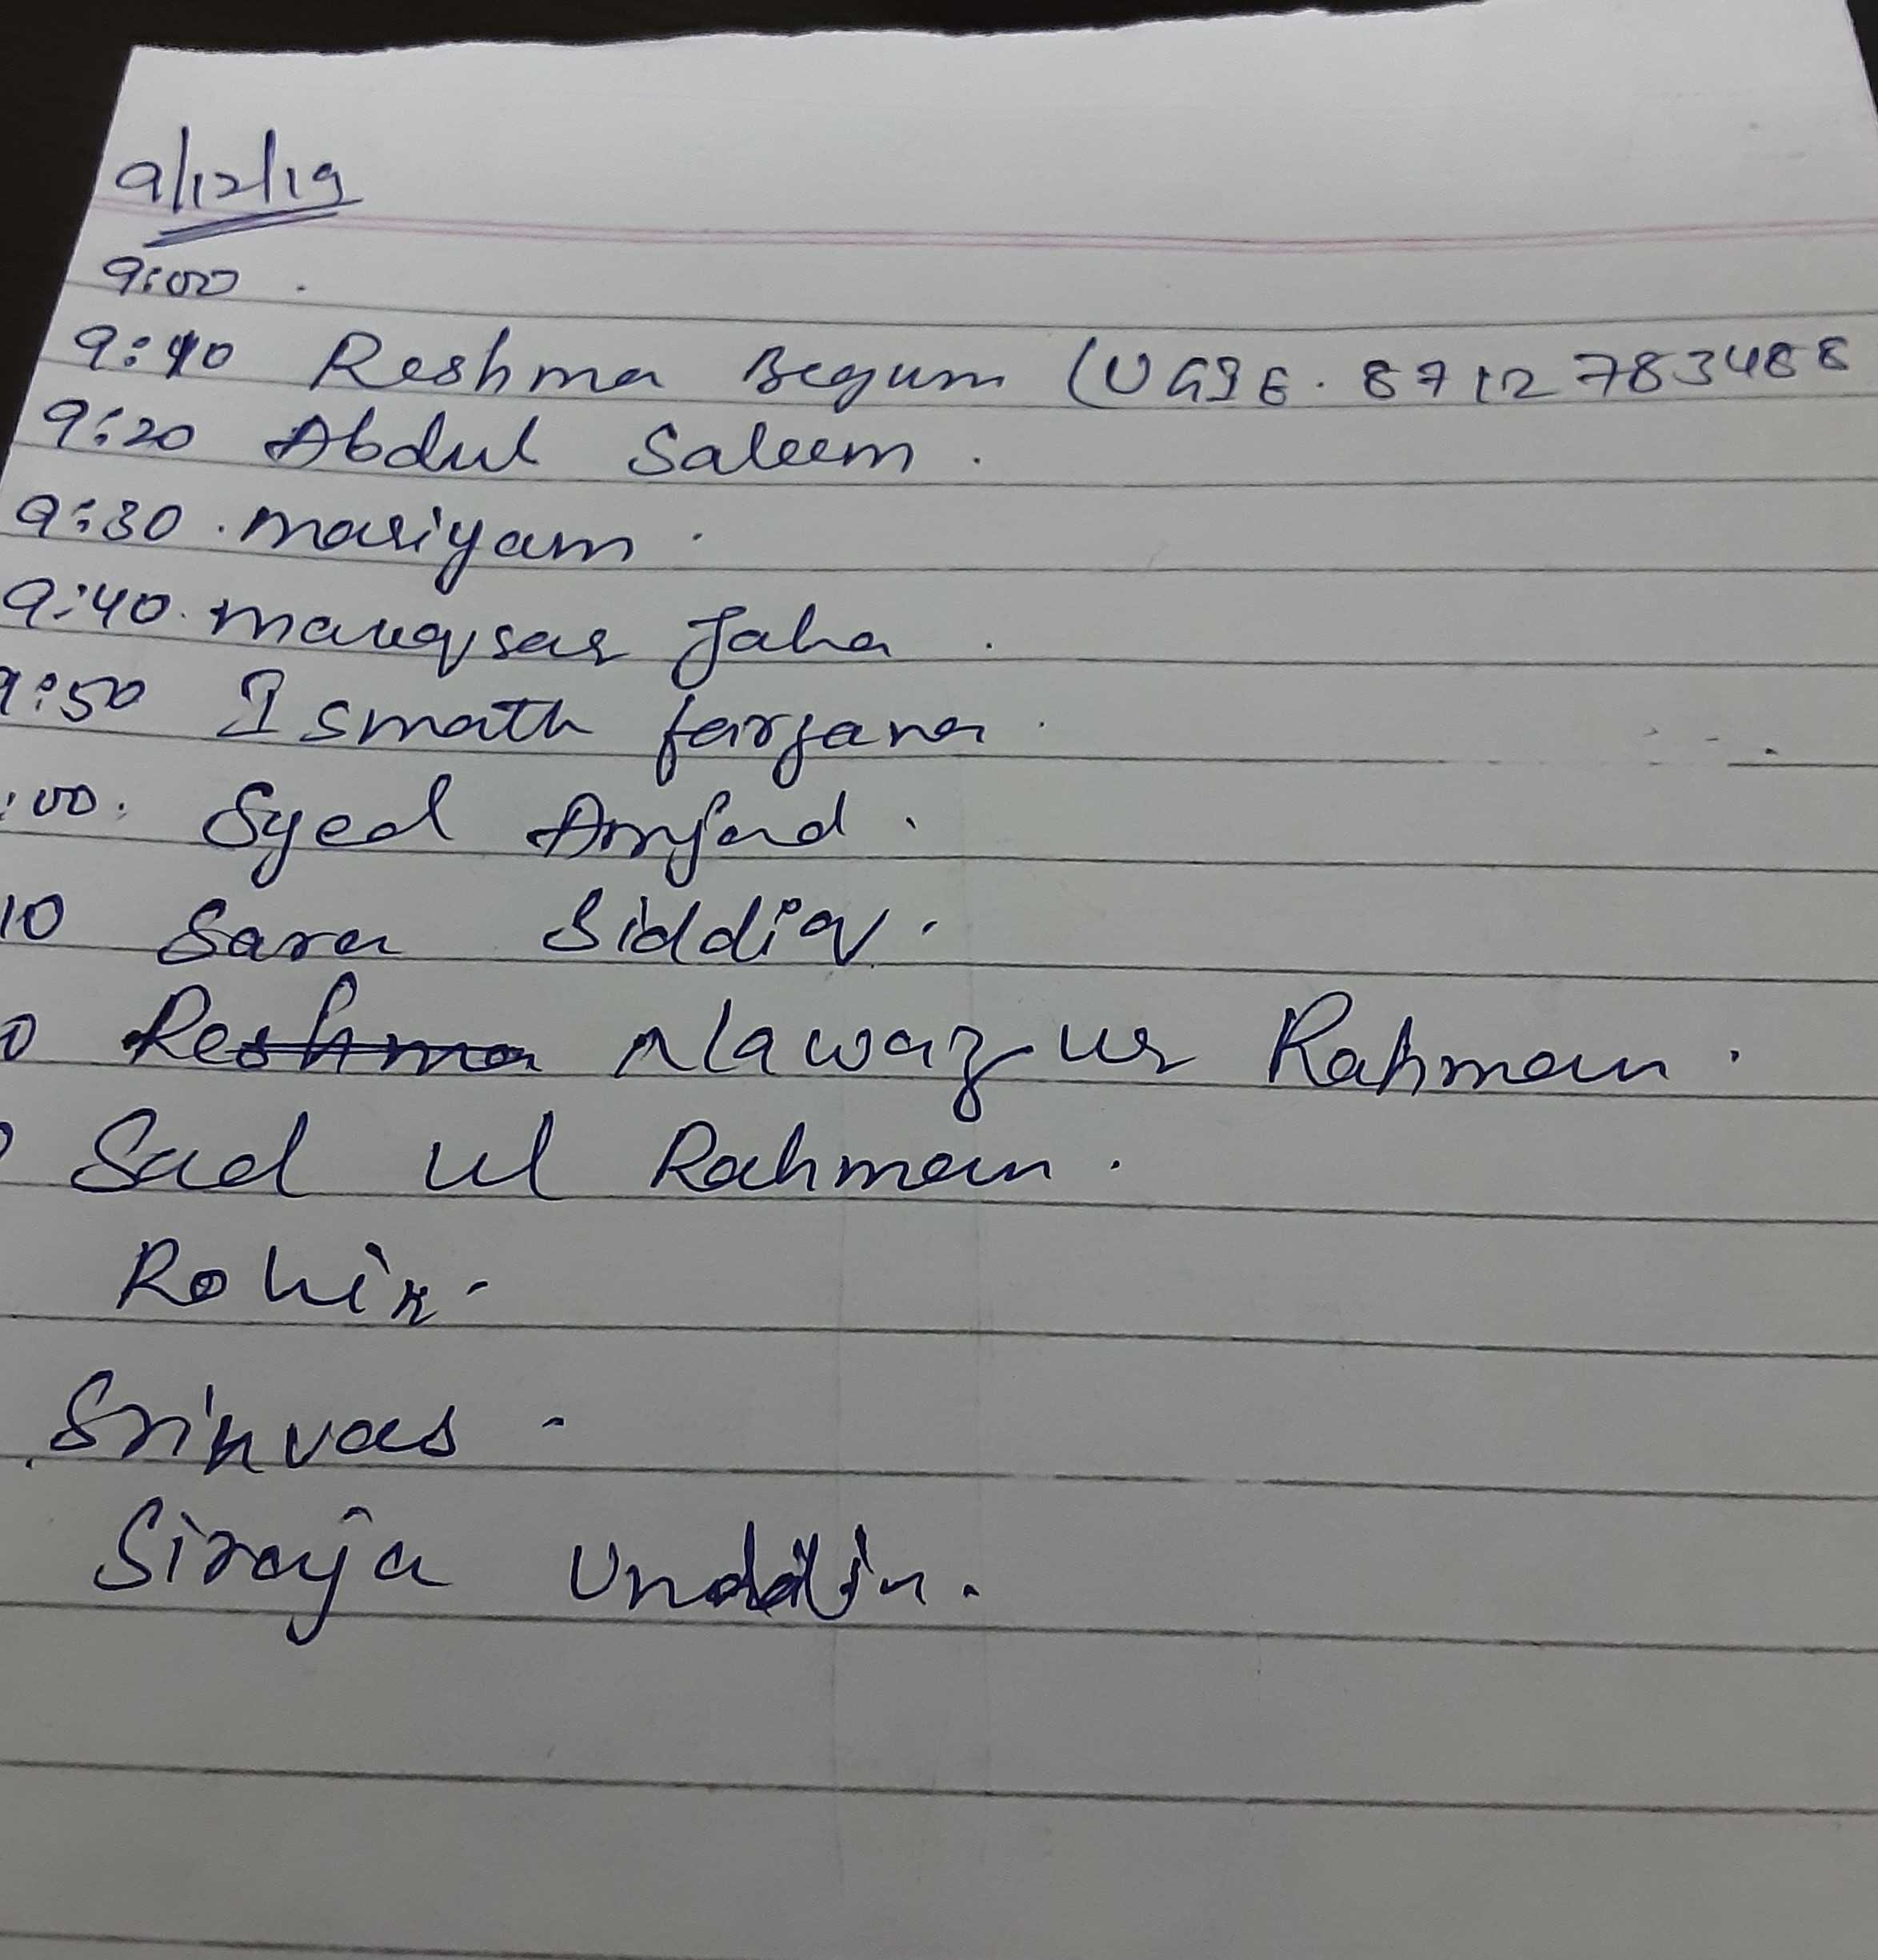 9/12/19
9:00 .
9:10 Reshma Begum (UGIE. 8712783488
9:20 Abdul Saleem .
9:30 . mariyam .
9:40. mauqsar Jaha .
9:50 Ismath farzana .
:00. Syed Amjad .
10 Sara Siddiq .
0 Reshma Nawaz ur Rahman .
Sad ul Rahman .
Rohin.
Srinvas -
Siraja Unddin.